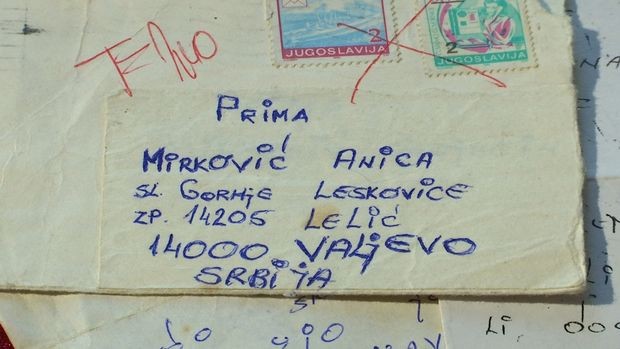 JUGOSLAVIJA
2
JUGOSLAVIJA
2
PRIMA
MIRKOVIĆ ANICA
SL. GORNJE LESKOVICE
ZP. 14205 LELIĆ
14000 VALJEVO
SRBIJA
LI